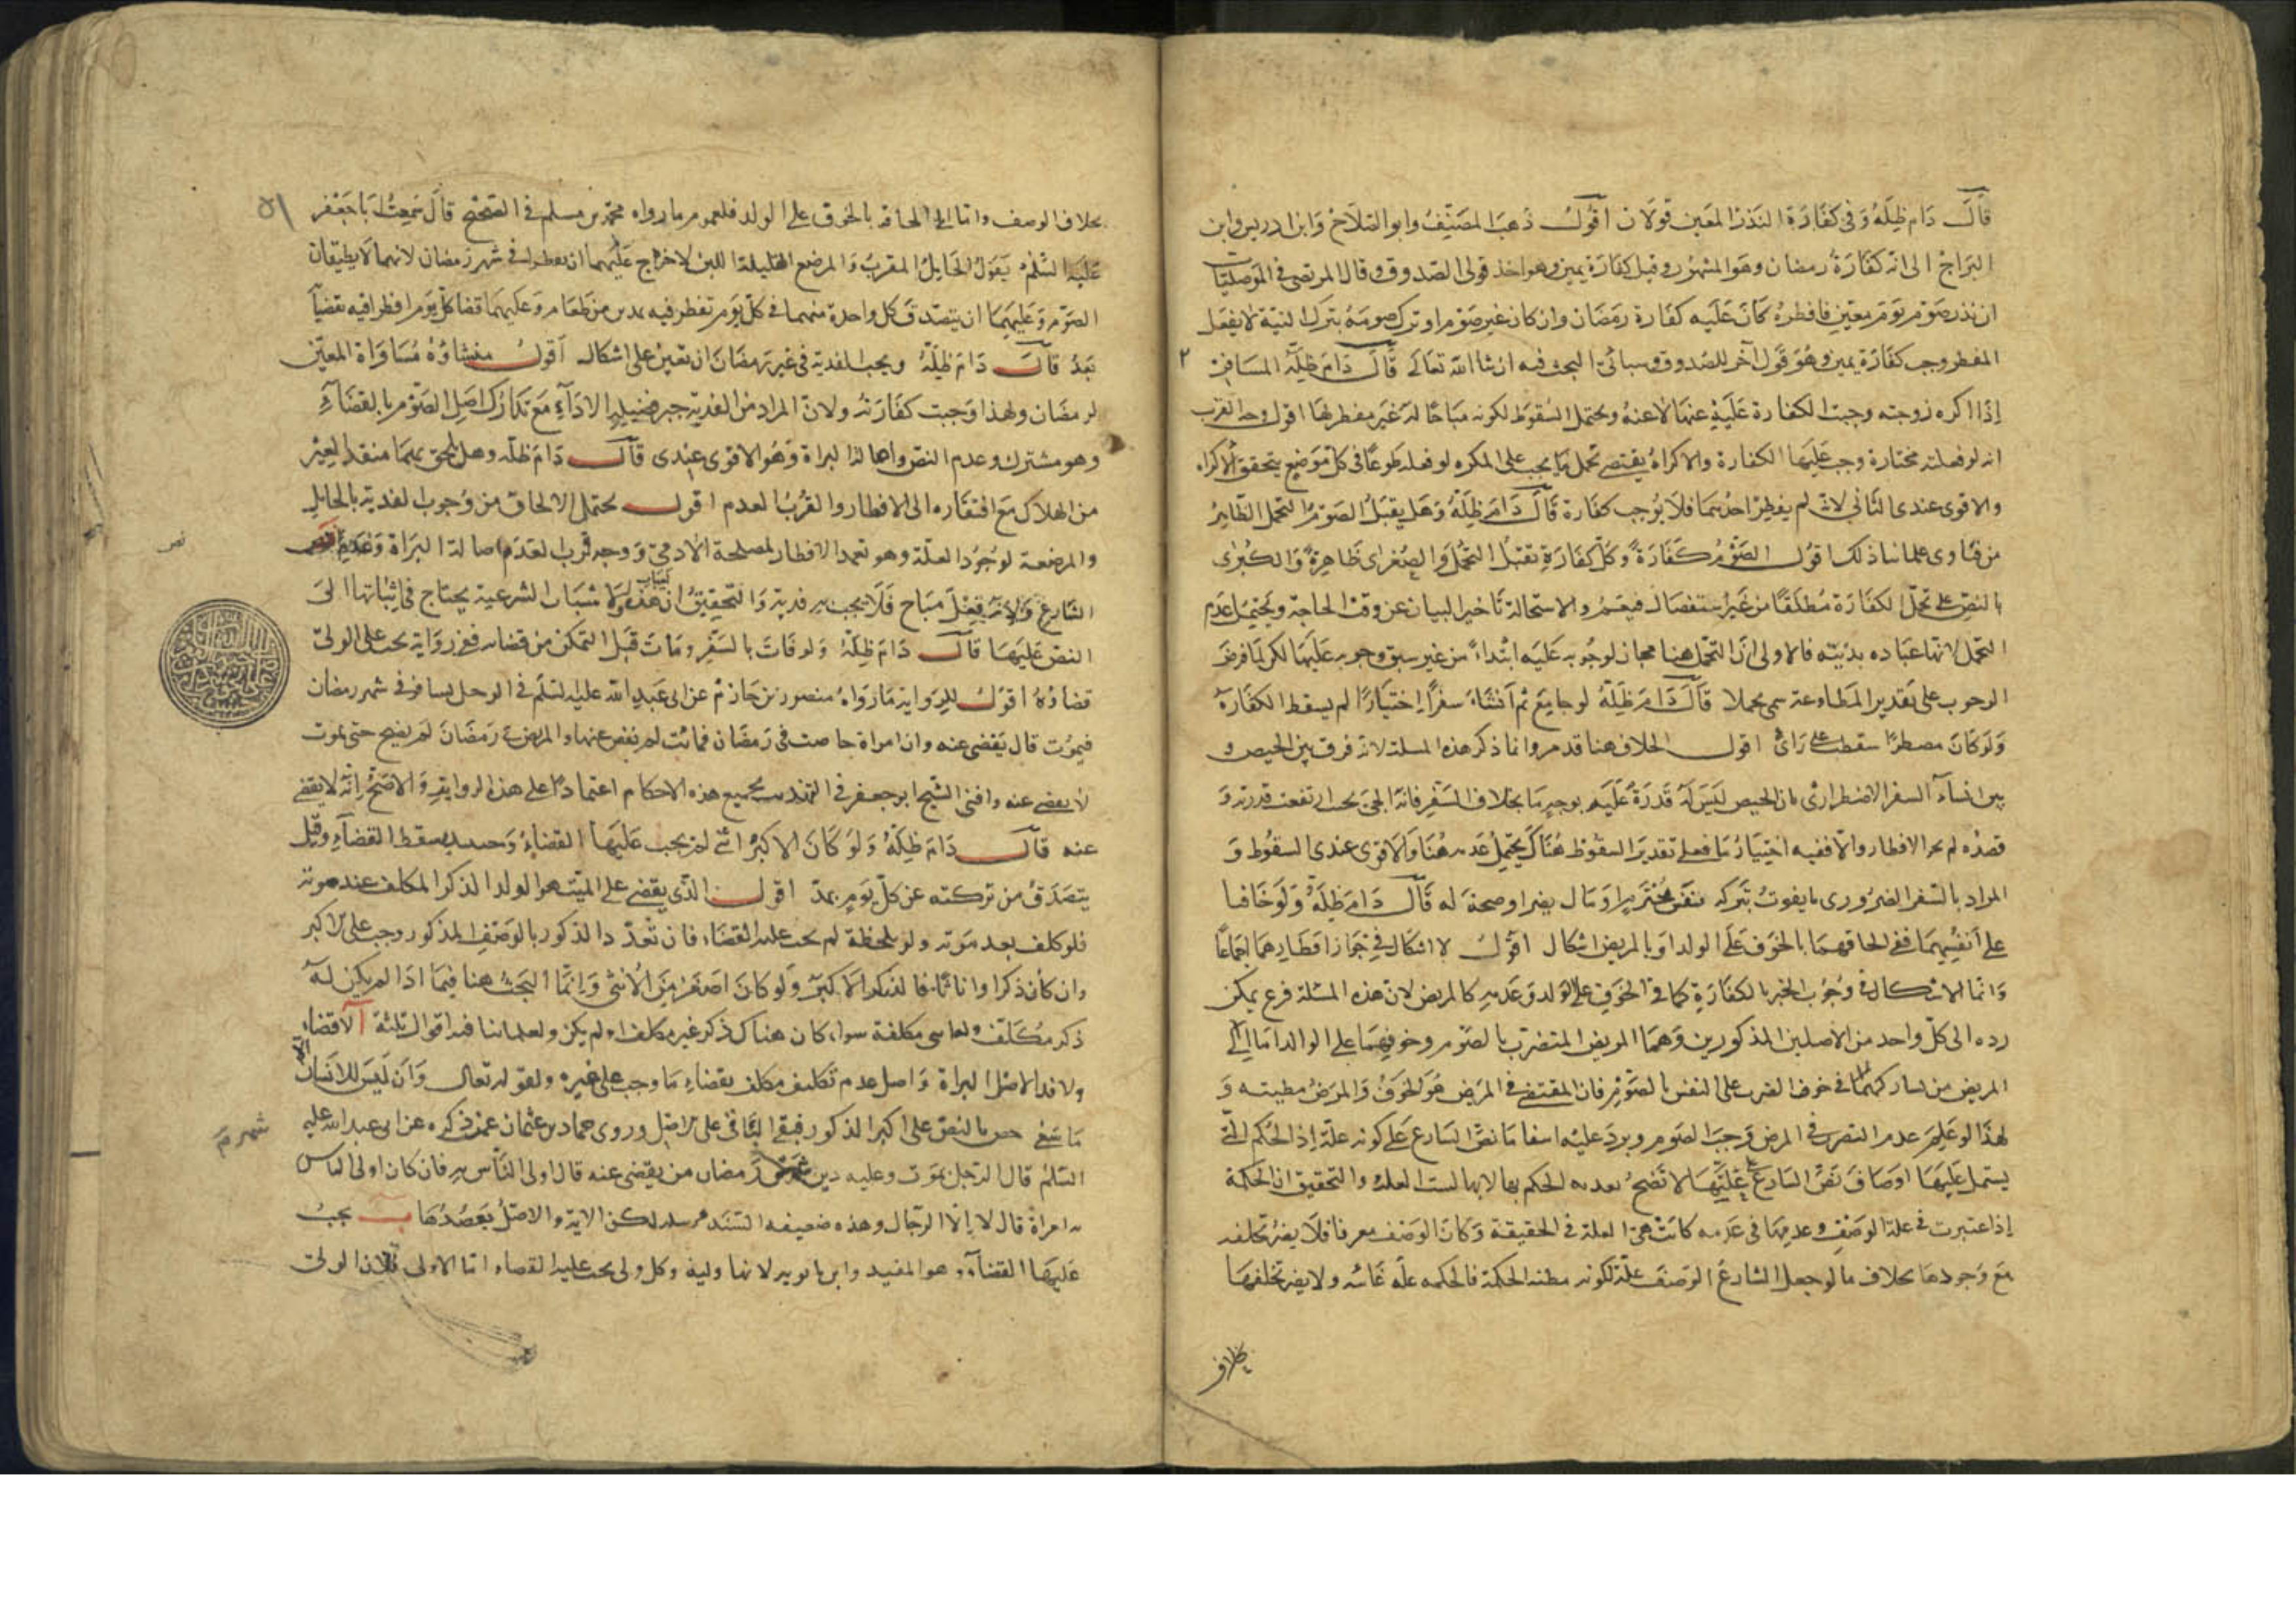 قال دام ظله وفي كفارة النذر المعين قولان اقول ذهب المصنف وابو الصلاح وابن ادريس وابن
البراج الى انه كفارة رمضان وهو المشهور وقيل كفارة يمين وهو احد قولي الصدوق وقال المرتضى في الموصليات
ان نذر صوم يوم معين فافطره كان عليه كفارة رمضان وان كان غير صوم او ترك صومه بترك النية لا بفعل
المفطر وجب كفارة يمين وهو قول آخر للصدوق وسيأتي البحث فيه ان شا الله تعالى قال دام ظله المسافر
إذا اكره زوجته وجبت الكفارة عليه عنها لا عنه ويحتمل السقوط لكونه مباحا له غير مفطر لها اقول وجه القرب
انه لو فعلته مختارة وجب عليها الكفارة والاكراه يقتضي تحمل ما يجب على المكره لو فعله طوعا في كل موضع يتحقق الاكراه
والاقوى عندي الثاني لانه لم يفطر احدهما فلا يوجب كفارة قال دام ظله وهل يقبل الصوم التحمل الظاهر
من فتاوى علمائنا ذلك اقول الصوم كفارة وكل كفارة تقبل التحمل والصغرى ظاهرة والكبرى
بالنص على تحمل الكفارة مطلقا من غير استفصال فيعم والا استحالة تأخير البيان عن وقت الحاجة ويحتمل عدم
التحمل لانها عباده بدنيته فالاولى ان التحمل هنا مجاز لوجوبه عليه ابتداء من غير سبق وجوبه عليها لكن لما فرض
الوجوب على تقدير المطاوعة سمي تحملا قال دام ظله لو جامع ثم انشاء سفرا إختيارا لم يسقط الكفارة
ولو كان مضطرا سقطت على رائ اقول الخلاف هنا قدم وانما ذكر هذه المسلة لانه فرق بين الحيض و
بين انشاء السفر الاضطراري فان الحيض ليس له قدرة عليه بوجه ما بخلاف السفر فانه الجئ بحيث ارتفعت قدرته و
قصده لم يجز الافطار والا ففيه اختيار ما فعلى تقدير السقوط هناك يحتمل عدمه هنا والاقوى عندي السقوط و
المراد بالسفر الضروري ما يفوت بتركه نفس محترم او مال يضر او صحة له قال دام ظله ولو خافتا
على انفسهما ففي الحاقهما بالخوف على الولد او بالمريض اشكال اقول لا اشكال في جواز افطارهما اجماعا
وانما الاشكال في وجوب الجبر بالكفارة كما في الخوف على الولد وعدمه كالمريض لان هذه المسئلة فرع يمكن
رده الى كل واحد من الاصلين المذكورين وهما المريض المتضرب بالصوم وخوفهما على الوالد اما الى
المريض فلمشاركتهما في خوف الضرر على النفس بالصوم فان المقتضي في المرض هو الخوف والمرض مظنته و
لهذا لو علم عدم التضرر في المرض وجب الصوم ويرد عليه انتفا ما نص الشارع على كونه علة إذ الحكم التي
يشتمل عليها اوصاف نص الشارع على عليتها لا تصح تعدية الحكم بها لانها ليست العلة والتحقيق ان الحكمة
إذا اعتبرت في علة الوصف وعدمها في عدمه كانت هي العلة في الحقيقة وكان الوصف معرفا فلا يضر تخلفه
مع وجودها بخلاف ما لو جعل الشارع الوصف علة لكونه مظنة الحكمة فالحكمه علة غائية ولا يضر تخلفها
بخلاف
٥١
بخلاف الوصف واما الى الحاقه بالخوف على الولد فلعموم ما رواه محمد بن مسلم في الصحيح قال سمعت ابا جعفر
عليه السلم يقول الحامل المقرب والمرضع القليلة اللبن لا حرج عليهما ان تفطرا في شهر رمضان لانهما لا يطيقان
الصوم وعليهما ان يتصدق كل واحدة منهما في كل يوم تفطر فيه بمد من طعام وعليهما قضا كل يوم افطرا فيه تقضيا
بعد قال دام ظله ويجب الفدية في غير رمضان ان تعين على اشكال اقول منشاؤه مساواة المعين
لرمضان ولهذا وجبت كفارته ولان المراد من الفدية جبر فضيلة الاداء مع تدارك اصل الصوم بالقضاء
وهو مشترك وعدم النص واصالة البراة وهو الاقوى عندي قال دام ظله وهل يلحق بهما منقذ الغير
من الهلاك مع افتقاره الى الافطار والقرب العدم اقول يحتمل الالحاق من وجوب الفدية بالحامل
والمرضعة لوجود العلة وهو تعمد الافطار لمصلحة الادمي ووجه قرب العدم اصالة البراة وعدم نص
الشارع ولانه فعل مباح فلا يجب به فدية والتحقيق ان هذه الاسباب الشرعية يحتاج في اثباتها الى
نص
النص عليها قال دام ظله ولو فات بالسفر ومات قبل التمكن من قضائه ففي رواية يجب على الولي
قضاؤه اقول الرواية ما رواه منصور بن حازم عن ابي عبد الله عليه السلم في الرجل يسافر في شهر رمضان
فيموت قال يقضى عنه وان امراة حاضت في رمضان فماتت لم يقض عنها والمريض في رمضان لم يصح حتى يموت
لا يقضى عنه وافتى الشيخ ابو جعفر في التهذيب بجميع هذه الاحكام اعتمادا على هذه الرواية والاصح انه لا يقضى
عنه قال دام ظله ولو كان الاكبر انثى لم يجب عليها القضاء وحينئذ يسقط القضاء وقيل
يتصدق من تركته عن كل يوم بمد اقول الذي يقضي على الميت هو الولد الذكر المكلف عند موته
فلو كلف بعد موته ولو بلحظة لم يجب عليه القضاء فان تعدد الذكور بالوصف المذكور وجب على الاكبر
وان كان ذكرا واناثا فالذكر الاكبر ولو كان اصغر من الانثى وانما البحث هنا فيما اذا لم يكن له
ذكر مكلف ولها سمى مكلفة سوا كان هناك ذكر غير مكلف او لم يكن ولعلمائنا فيه اقوال ثلثة آ لا قضاء
ولا فدا لاصل البراة واصل عدم تكليف مكلف بقضاء ما وجب على غيره ولقوله تعالى وان ليس للانسان الا
ما سعى خص بالنص على اكبر الذكور فبقي الباقي على الاصل وروى حماد بن عثمان عمن ذكره عن ابي عبد الله عليه
السلم قال الرجل يموت وعليه دين من رمضان من يقضي عنه قال اولى الناس به فان كان اولى الناس
شهر
به امراة قال لا إلا الرجال وهذه ضعيفة السند مرسلة لكن الاية والاصل يعضدها ب يجب
عليها القضاء وهو المفيد وابن بابويه لانها ولية وكل ولي يجب عليه القضاء اما الاولى فلان الولي